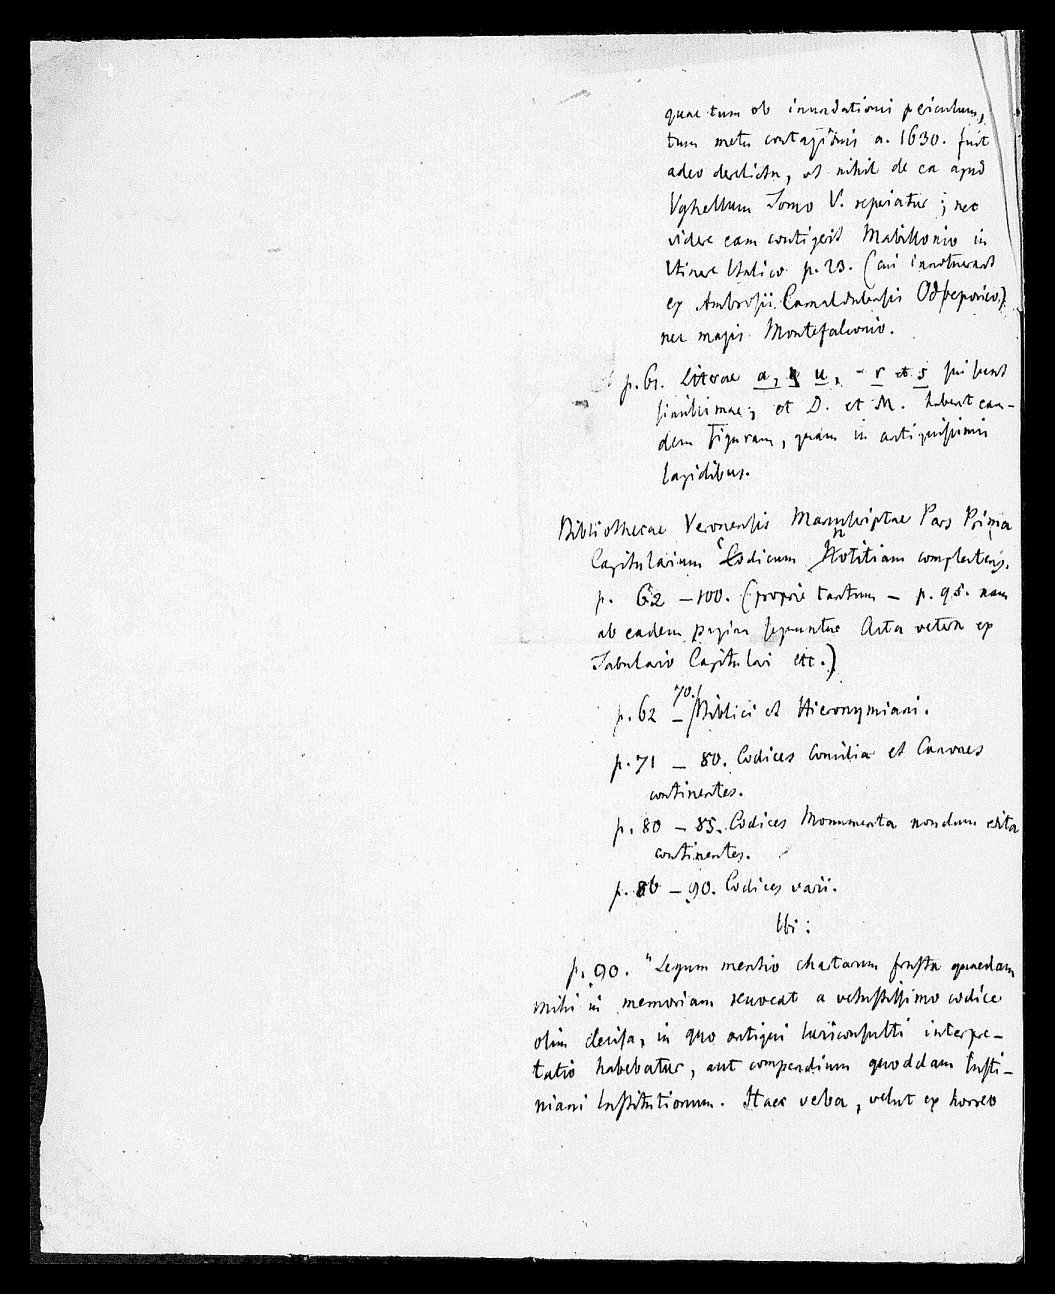 quae tum ob inundationis periculum,
tum metu contagionis a. 1630. fuit
adeo derelicta, ut nihil de ea apud
Vghellum Tomo V. reperiatur; nec
videre eam contigerit Mabillonio in
Itinere Italico p. 23. (cui innotuerat
ex Ambrosii Camaldulensis Odoeporico)
nec magis Montefalconio.
p. 61. Literae a, u, - r et s sui sunt
simillimae; et D. et M. habent ean-
dem figuram, quam in antiquissimis
lapidibus.
Bibliothecae Veronensis Manuscriptae Pars Prima
Capitularium Codicum Notitiam complectens.
p. 62 - 100. (proprie tantum - p. 95. nam
ab eadem pagina sequuntur Acta vetera ex
Tabulario Capitulari etc.)
p. 62 - 70. Biblici et Hieronymiani.
p. 71 - 80. Codices Concilia et Canones
continentes.
p. 80 - 85. Codices Monumenta nondum edita
continentes.
p. 86 - 90. Codices varii.
Ibi:
p. 90. "Legum mentio chartarum frusta quaedam
mihi in memoriam revocat a vetustissimo codice
olim decisa, in quo antiqui Iurisconsulti interpre-
tatio habebatur, aut compendium quoddam Iusti-
niani Institutionum. Haec verba, velut ex horreo